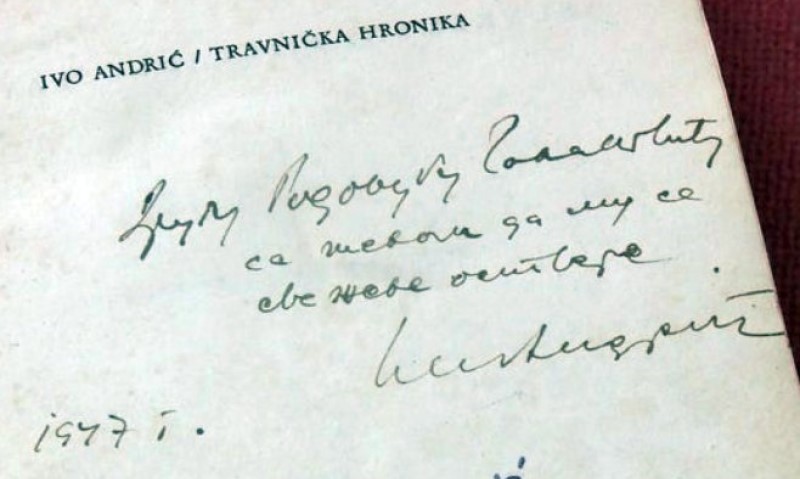 IVO ANDRIĆ / TRAVNIČKA HRONIKA
Другу Родољубу
са жељом да му се
све жеље остваре.
Иво Андрић
1947 г.